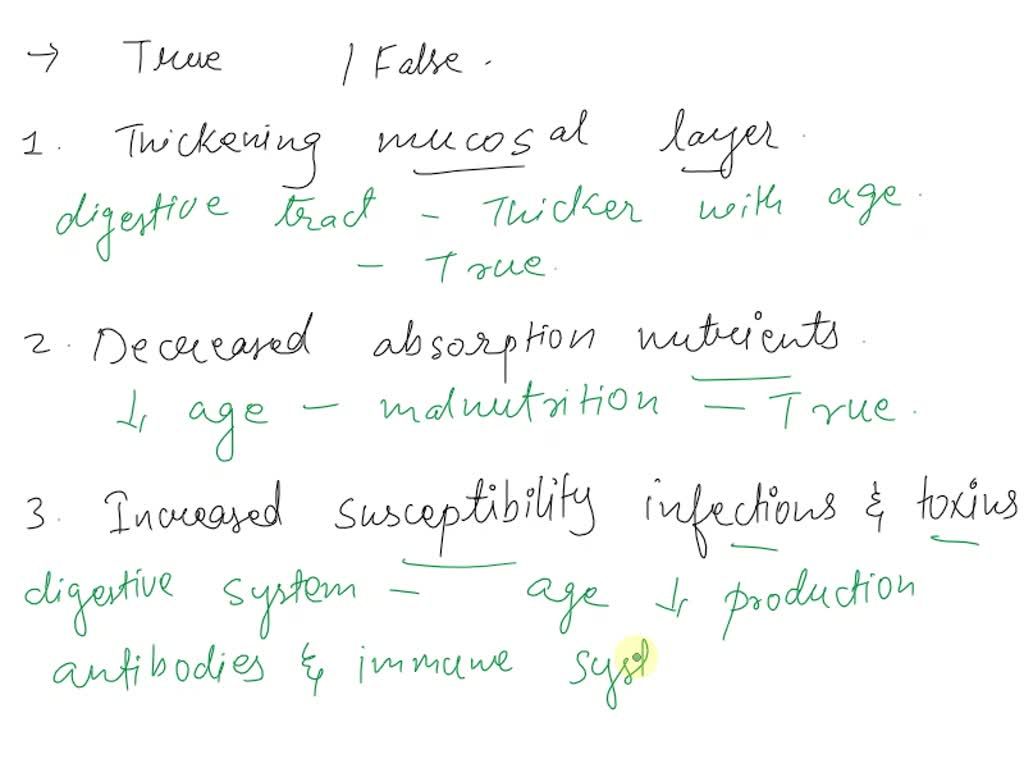 → True / False .
1. Thickening mucosal layer .
digestive tract - Thicker with age .
- True .
2. Decreased absorption nutrients .
↓ age - malnutrition = True .
3. Increased susceptibility infections & toxins
digestive system - age ↓ production
antibodies & immune syst